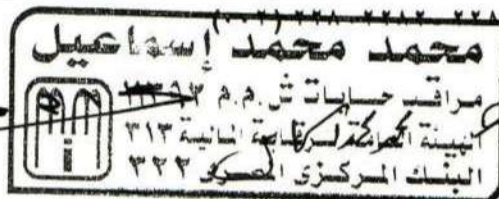 محمد محمد إسماعيل
مراقب حسابات ش.م.م
الهيئة العامة لرقابة المالية ٣١٣
البنك المركزى المصرى ٣٢٢